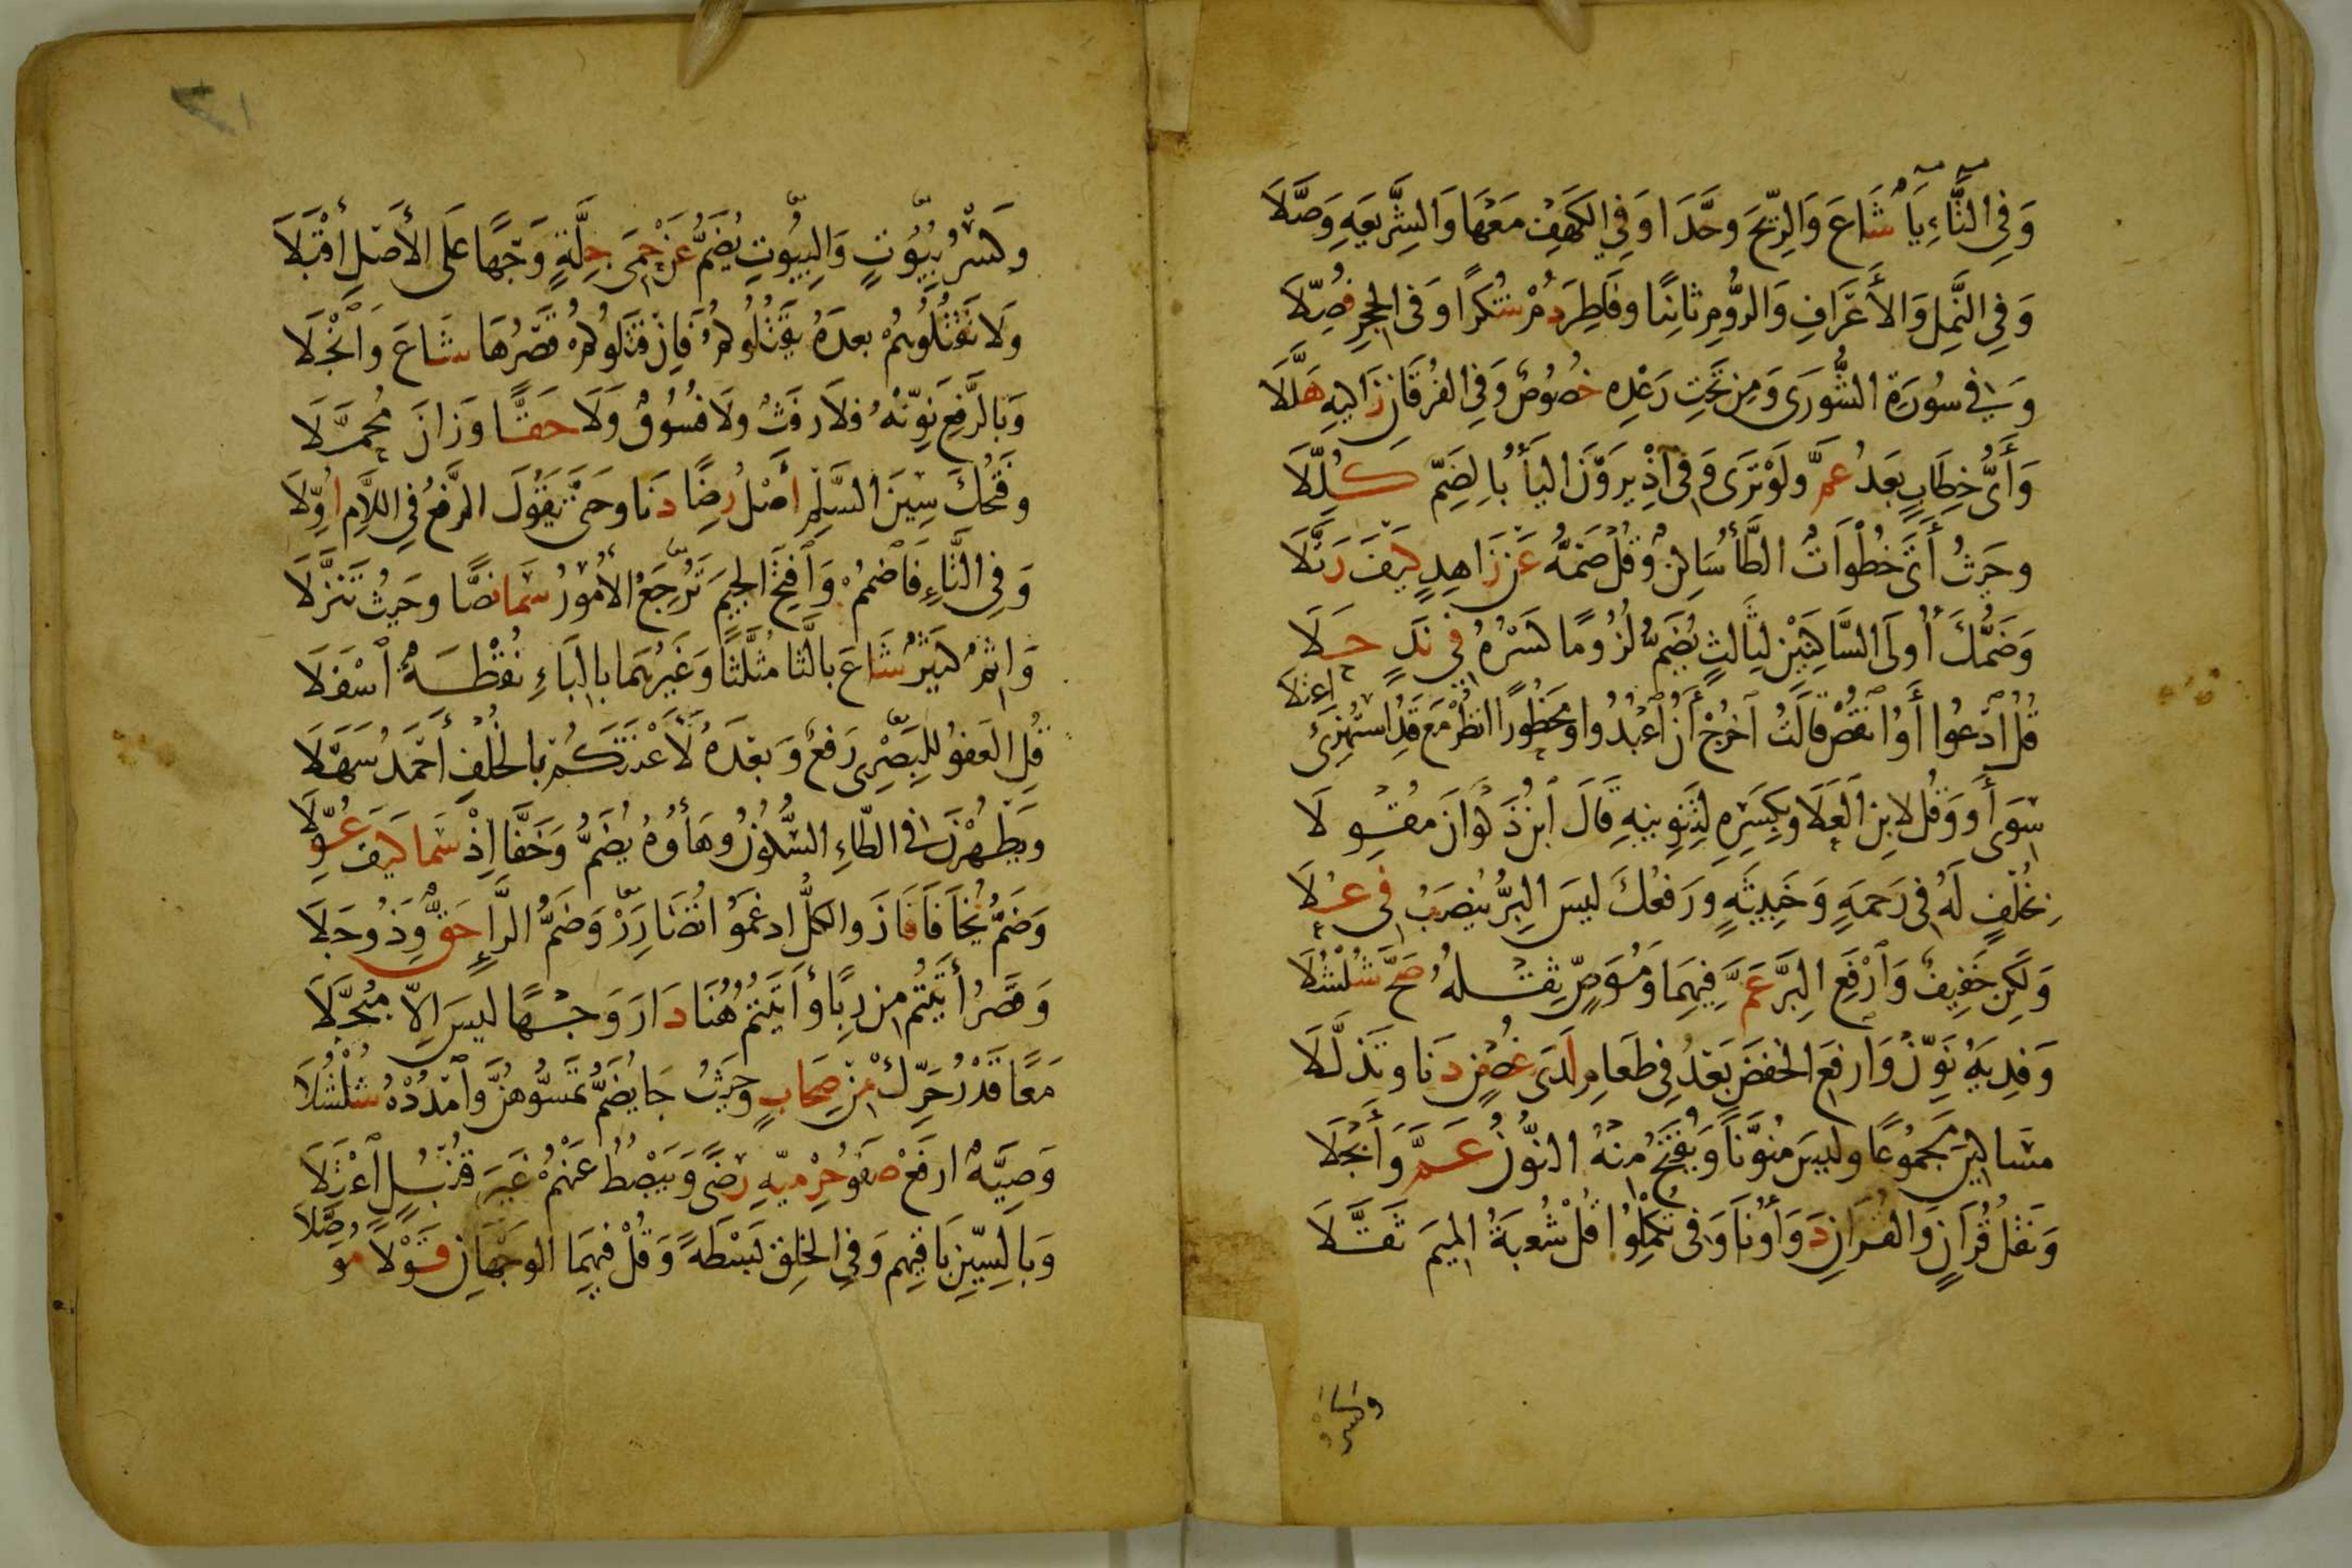 وَفِي التَّاءِ يَاءٌ شَاعَ وَالرِّيحَ وَحَّدَا وَفِي الْكَهْفِ مَعْهَا وَالشَّرِيعَةِ وَصَّلَا
وَفِي النَّمْلِ وَالْأَعْرَافِ وَالرُّومِ ثَانِيًا وَفَاطِرَ دُمْ شُكْرًا وَفِي الْحِجْرِ فُصِّلَا
وَفِي سُورَةِ الشُّورَى وَمِنْ تَحْتِ رَعْدِهِ خُصُوصٌ وَفِي الْفُرْقَانِ زَاكِيهِ هَلَّلَا
وَأَيُّ خِطَابٍ بَعْدُ عَمَّ وَلَوْ تَرَى وَفِي إِذْ يَرَوْنَ الْيَاءُ بِالضَّمِّ كُلِّلَا
وَحَيْثُ أَتَى خُطْوَاتٌ الطَّاءُ سَاكِنٌ وَقُلْ ضَمُّهُ عَنْ زَاهِدٍ كَيْفَ رَتَّلَا
وَضَمُّكَ أُولَى السَّاكِنَيْنِ لِثَالِثٍ يُضَمُّ لُزُومًا كَسْرُهُ فِي نَدٍ حَلَا
قُلِ ادْعُوا أَوُ انْقُصْ قَالَتُ اخْرُجْ أَنُ اعْبُدُوا وَمَحْظُورًا انْظُرْ مَعْ قَدُ اسْتُهْزِئَ اعْتَلَا
سِوَى أَوْ وَقُلْ لِابْنِ الْعَلَا وَبِكَسْرِهِ لِتَنْوِينِهِ قَالَ ابْنُ ذَكْوَانَ مُقْوِلَا
بِخُلْفٍ لَهُ فِي رَحْمَةٍ وَخَبِيثَةٍ وَرَفْعُكَ لَيْسَ الْبِرُّ يُنْصَبُ فِي عُلَا
وَلَكِنْ خَفِيفٌ وَارْفَعِ الْبِرَّ عَمَّ فِيهِمَا وَمُوَصٍّ ثِقْلُهُ صَحَّ شُلْشُلَا
وَفِدْيَةُ نَوِّنْ وَارْفَعِ الْخَفْضَ بَعْدُ فِي طَعَامِ لَدَى غُصْنٍ دَنَا وَتَذَلَّلَا
مَسَاكِينَ مَجْمُوعًا وَلَيْسَ مُنَوَّنًا وَيُفْتَحُ مِنْهُ النُّونُ عَمَّ وَأَبْجَلَا
وَنَقْلُ قُرَانٍ وَالْقُرَانِ دَوَاؤُنَا وَفِي تُكْمِلُوا قُلْ شُعْبَةُ الْمِيمَ ثَقَّلَا
وكسر
وَكَسْرُ بُيُوتٍ وَالْبُيُوتِ يُضَمُّ عَنْ حِمَى جِلَّةٍ وَجْهًا عَلَى الْأَصْلِ أَقْبَلَا
وَلَا تَقْتُلُوهُمْ بَعْدَهُ يَقْتُلُوكُمُ فَإِنْ قَتَلُوكُمْ قَصْرُهَا شَاعَ وَانْجَلَا
وَبِالرَّفْعِ نَوِّنْهُ فَلَا رَفَثٌ وَلَا فُسُوقٌ وَلَا حَقًّا وَزَانَ مُجَمَّلَا
وَفَتْحُكَ سِينَ السَّلْمِ أَصْلُ رِضًا دَنَا وَحَتَّى يَقُولَ الرَّفْعُ فِي اللَّامِ أُوِّلَا
وَفِي التَّاءِ فَاضْمُمْ وَافْتَحِ الْجِيمَ تَرْجِعُ الْأُمُورُ سَمَا نَصًّا وَحَيْثُ تَنَزَّلَا
وَإِثْمٌ كَثِيرٌ شَاعَ بِالثَّا مُثَلَّثًا وَغَيْرُهُمَا بِالْبَاءِ نُقْطَةٌ اسْفَلَا
قُلِ الْعَفْوُ لِلْبَصْرِيِّ رَفْعٌ وَبَعْدَهُ لَأَعْنَتَكُمْ بِالْخُلْفِ أَحْمَدُ سَهَّلَا
وَيَطْهُرْنَ فِي الطَّاءِ السُّكُونُ وَهَاؤُهُ يُضَمُّ وَخَفَّا إِذْ سَمَا كَيْفَ عُوِّلَا
وَضَمُّ يَخَافَا فَازَ وَالْكُلُّ ادْغَمُوا تُضَارَرْ وَضَمُّ الرَّاءِ حَقٌّ وَذُو جَلَا
وَقَصْرُ أَتَيْتُمْ مِنْ رِبًا وَأَتَيْتُمُ هُنَا دَارَ وَجْهًا لَيْسَ إِلَّا مُبَجَّلَا
مَعًا قَدْرُ حَرِّكْ مِنْ صِحَابٍ وَحَيْثُ جَا يُضَمُّ تَمَسُّوهُنَّ وَامْدُدْهُ شُلْشُلَا
وَصِيَّةٌ ارْفَعْ صَفْوُ حِرْمِيِّهِ رِضًى وَيَبْصُطُ عَنْهُمْ غَيْرَ قُنْبُلٍ اعْتَلَا
وَبِالسِّينِ بَاقِيهِمْ وَفِي الْخَلْقِ بَسْطَةً وَقُلْ فِيهِمَا الْوَجْهَانِ قَوْلًا مُوَصَّلَا